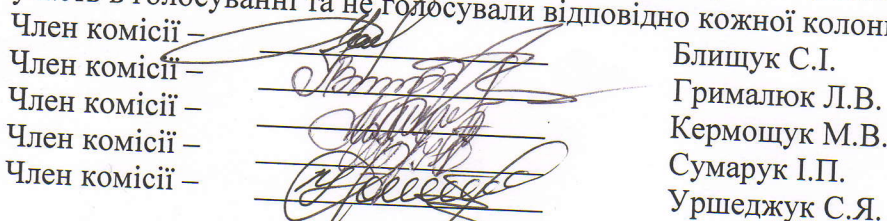 участь в голосуванні та не голосували відповідно кожної колон
Член комісії – Блищук С.І.
Член комісії – Грималюк Л.В.
Член комісії – Кермощук М.В.
Член комісії – Сумарук І.П.
Член комісії – Уршеджук С.Я.